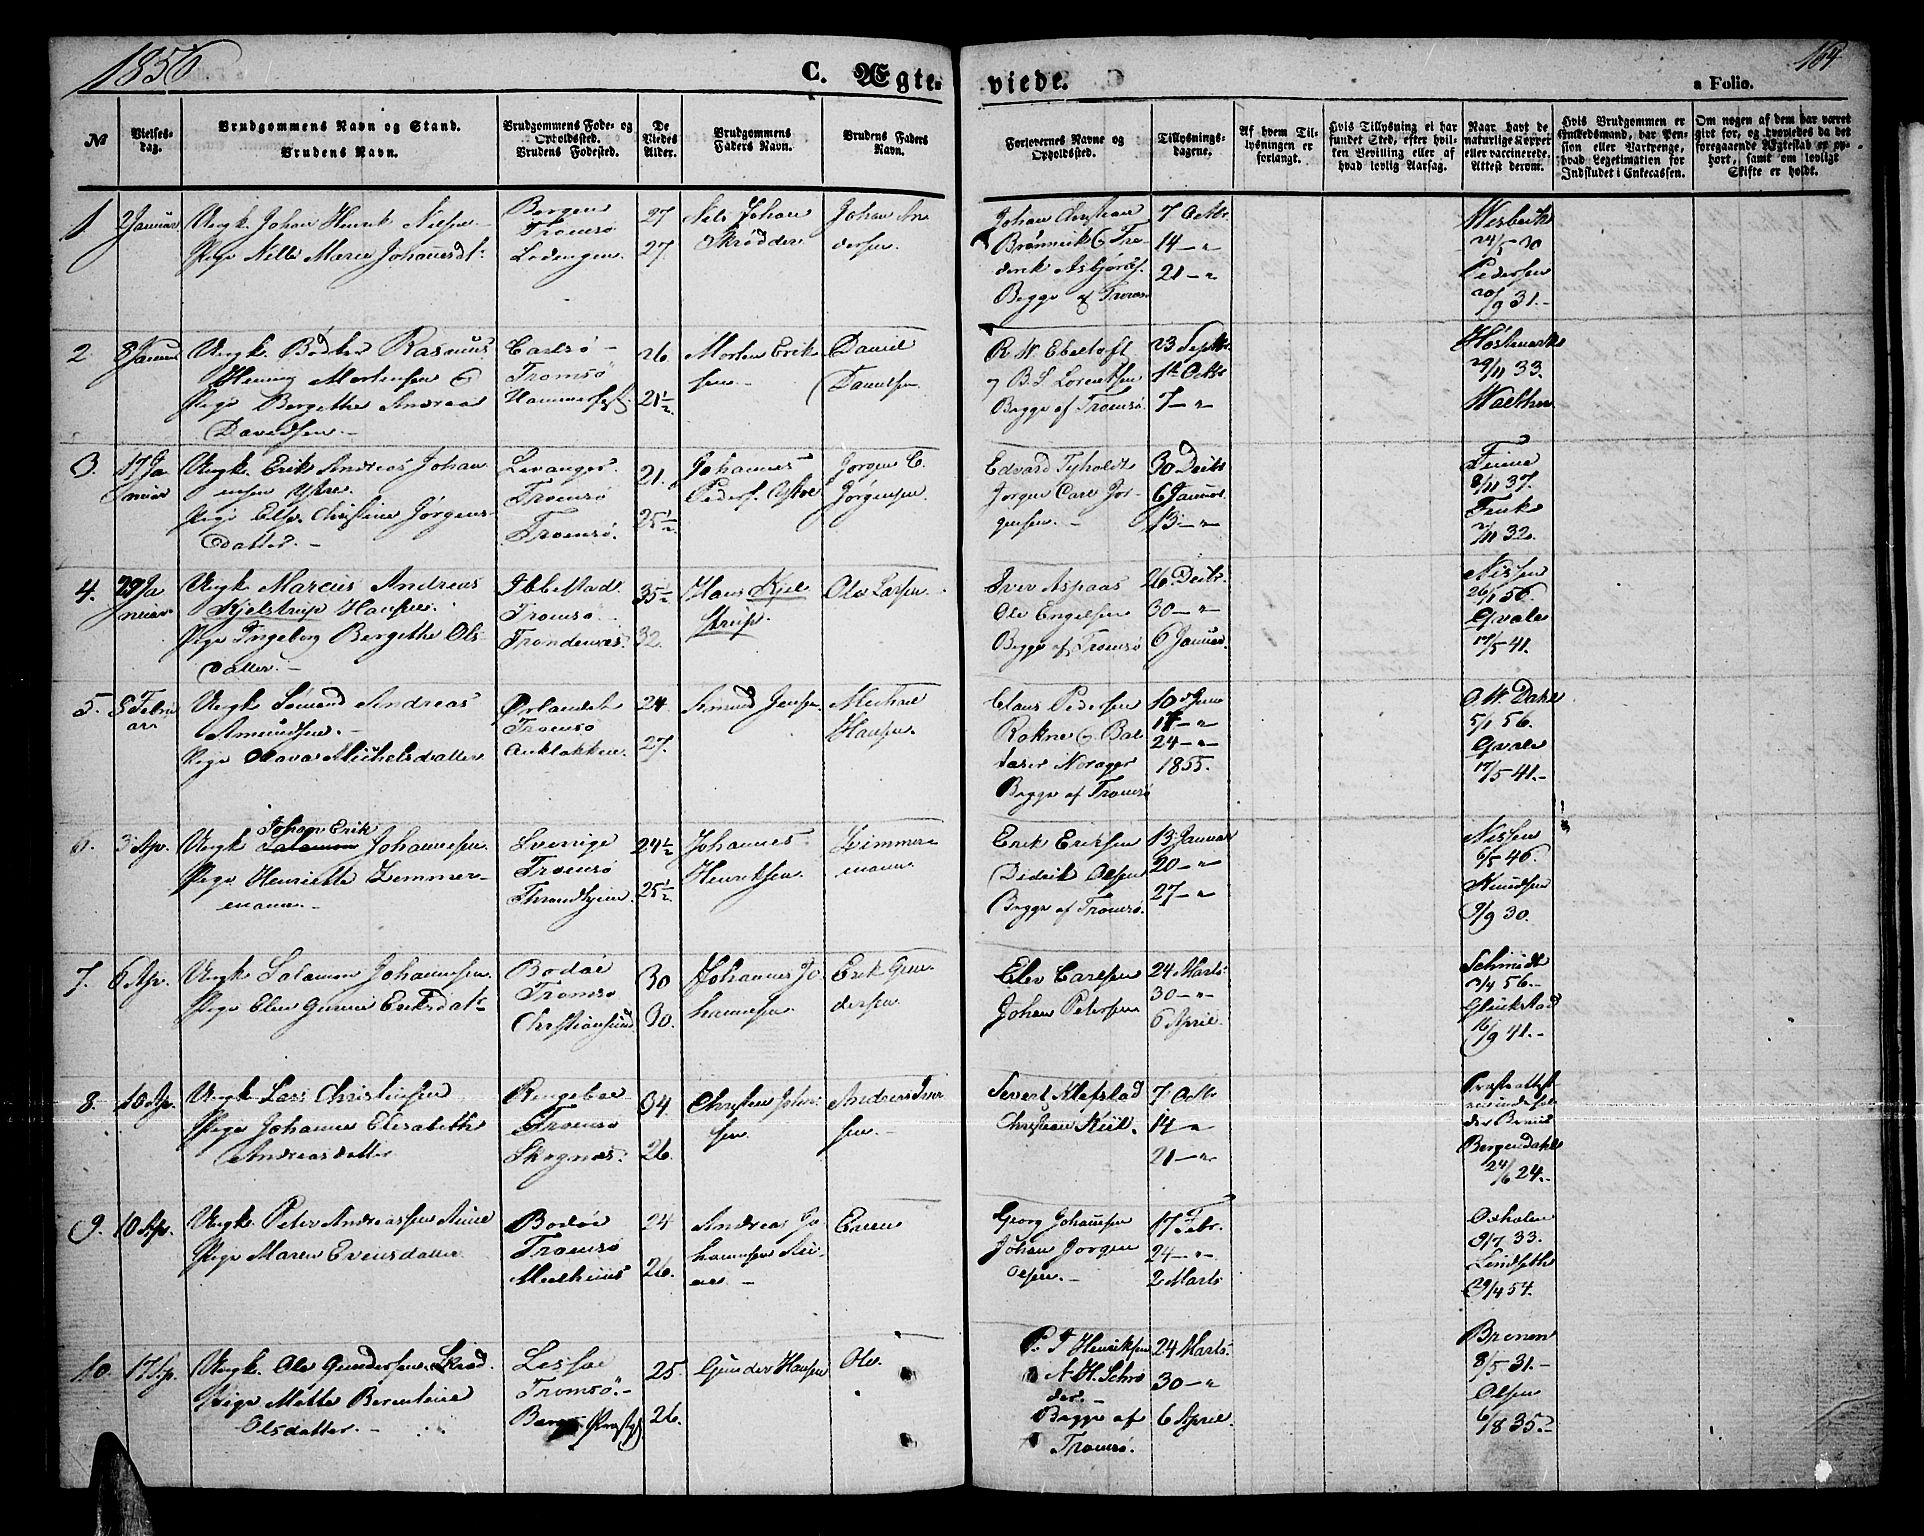 1856
C. Ægte-
viede.
164
a Folio.
№
Vielses-
dag.
Brudgommens Navn og Stand.
Brudens Navn.
Brudgommens Føde- og
Opholdssted.
Brudens Fødested.
De
Viedes
Alder.
Brudgommens
Faders Navn.
Brudens Faders
Navn.
Forlovernes Navne og
Opholdssted.
Tillysnings-
dagene.
Af hvem Til-
lysningen er
forlangt.
Hvis Tillysning ei har
fundet Sted, efter hvil-
ken Bevilling eller af
hvad lovlig Aarsag.
Naar havt de
naturlige Kopper
eller vaccinerede.
Attest derom.
Hvis Brudgommen er
Enkedsmand, har Pen-
sion eller Vartpenge,
hvad Legetimation for
Indskudet i Enkecassen.
Om nogen af dem har været
gift før, og hvorledes da det
foregaaende Ægteskab er op-
hørt, samt om lovligt
Skifte er holdt.
1
2 Januar
Ungk. Johan Henrik Nielsen
Pige Nille Marie Johansdt.
Bergen
Tromsö
Lødingen
27
27
Nils Johan
Skrødder
Johan An
dersen
Johan Christian
Brønvik & Fre
derik Asbjörs.
Begge af Tromsö
7 Octbr.
14 — "
21 — "
24/5 30
Pedersen
20/9 31.
2
8 Januar
Ungk. Bødker Rasmus
Hening Mortensen &
Pige Bergethe Andrea
Davidsen
Carlsö
Tromsö
Hammerfest
26
21 1/2
Morten Erik
sen
Daniel
Danielsen
R W Ebeltoft
B. S. Lorentsen
Begge af Tromsö
23 Septbr.
1st Octbr
7 — "
29/11 33.
Walther
3.
17 Ja
nuar
Ungk. Erik Andreas Johan
ensen Ystre.
Pige Else Christine Jörgens
datter.
Levanger
Tromsö
Tromsö
21.
25 1/2
Johannes
Peders. Ystre
Jørgen C.
Jørgensen
Edvard Tyholdt
Jørgen Carl Jør-
gensen.
30 Decbr
6 Januar.
13 — "
8/11 37.
2/11 32.
4.
29 Ja
nuar
Ungk Marcus Andreas
Kjelstrup Hansen.
Pige Ingeborg Bergethe Ols
datter.
Ibbestad
Tromsö
Trondenæs
35 1/2
32
Hans Kjel
strup.
Ole Larsen
Iver Aspaas
Ole Engelsen
Begge af Tromsö
26 Decbr.
30 — "
6 Januar
Nissen
26/1 56
Qvale
17/5 41.
5.
8 Febru
ar
Ungk Sömand Andreas
Amundsen.
Pige Michelsdatter
Ørlandet
Tromsö
24.
27.
Amund Jensen
Michael
Hansen.
Claus Pedersen
Rokne & Bal
taser Norager
Begge af Tromsö
10 Janu
17 — "
24 — "
1855.
O. W. Dahl
5/1 56.
Qvale
17/5 41.
6.
3 Ap.
Johan Erik
Ungk Salamon Johannesen.
Pige Henriette Zemmer-
mann.
Sverige
Tromsö
Throndhjem
24 1/2
25 1/2
Johannes
Henriksen
Zimmer
mann
Erik Eriksen
Didrik Olsen
Begge af Tromsö.
13 Januar
20 — "
27 — "
Nissen
6/5 46.
Knudsen
9/9 30.
7.
6 Ap.
Ungk Salamon Johannesen.
Pige Elen Gurine Eriksdat.
Bodöe
Tromsö
Christiansund
30
30.
Johannes Jo
hannesen
Erik Gun
dersen
Elev Carlsen
Johan Petersen
24 Marts
30 — "
6 April
Schmidt
3/4 56.
Glückstad
16/9 41.
8.
10 Ap.
Ungk Lars Christensen
Pige Johanne Elisabeth
Andreasdatter
Ringeboe
Tromsö
Skognæs
34
26.
Christen
sen
Andreas Iver
sen.
Severt Klefstad
Christian Kiil.
7 Octbr.
14 "
21 — "
Bergendahl
24/6 24.
9.
10 Ap.
Ungk. Peter Andreassen Aune
Pige Maren Evensdatter
Bodöe
Tromsö
Meelhuus
24
26.
Andreas Jo
hannesen Au
ne
Even
Georg Johansen
Johan Jørgen
Olsen.
17 Febr.
24 — "
2 Marts
Oxholm
9/7 33.
Lindseth
29/4 54.
10.
17 Ap.
Ungk. Ole Gundersen
Pige Mette Berentine
Olsdatter.
Tromsö.
25.
26.
Gunder Hansen
Ole.
P. J Henriksen
A. H. Schrö
der
Begge af
Tromsö.
24 Marts
30 — "
6 April.
8/5 31.
Olsen
6/8 35.